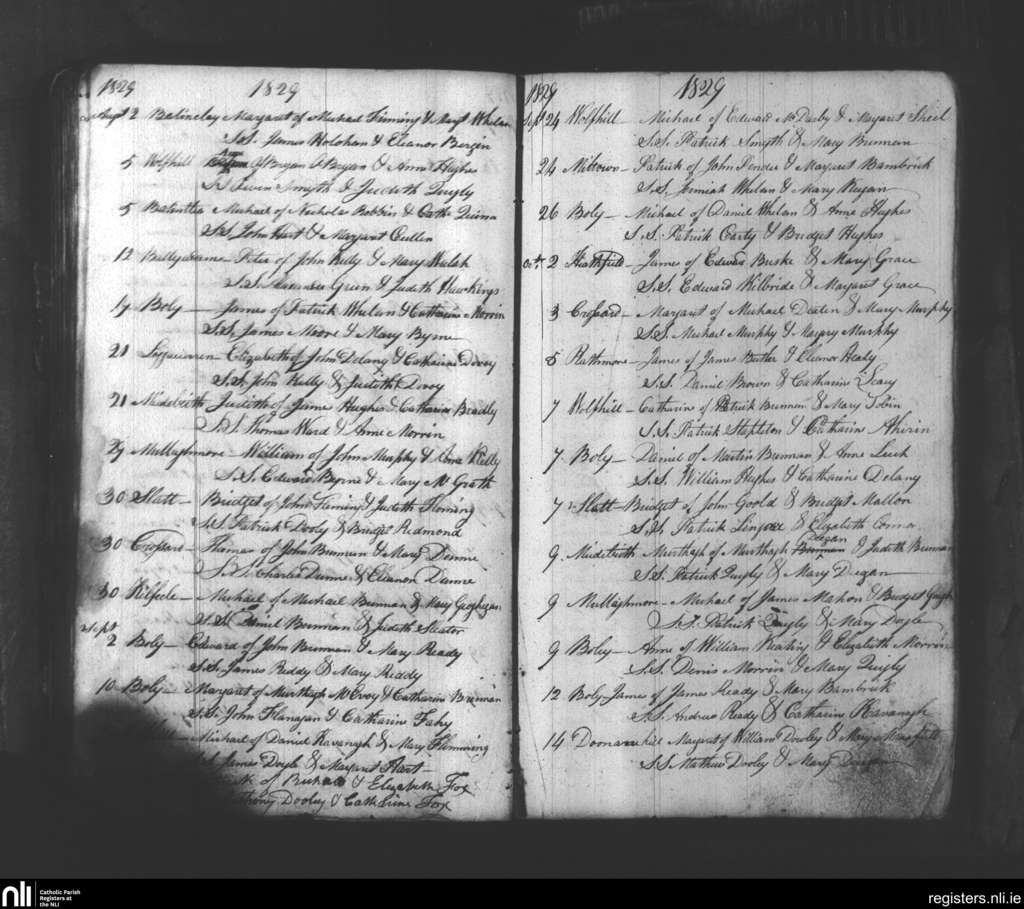 1829 1829
Augst 2 Balinclay Margaret of Michael Finning & Margt Whelan
S.S. James Holohan & Eleanor Bergin
5 Wolfhill Ann of Bryan & Anne Hughes
S.S. Smyth & Judith Quigly
5 Michael of Nicholas Bobbin & Cathe Quinn
S.S. John Hart & Margaret Cullen
12 Peter of John Kelly & Mary Walsh
S.S. Green & Judith Hawkings
19 Boly James of Patrick Whelan & Catharine Morrin
S.S. James Moore & Mary Byrne
21 Elizabeth of John Delany & Catharine Dovoy
S.S. John Kelly & Judith Dovoy
21 Judith of James Hughes & Catharine Bradly
S.S. Thomas Ward & Anne Morrin
29 Mullaghmore William of John Murphy & Anne Kelly
S.S. Edward Byrne & Mary McGrath
30 Slatt Bridget of John Fleming & Judith Fleming
S.S. Patrick Dooly & Bridget Redmond
30 Thomas of John Brennan & Mary Dunne
S.S. Charles Dunne & Eleanor Dunne
30 Michael of Michael Brennan & Mary Geoghegan
S.S. Daniel Brennan & Judith Slator
Sept
2 Boly Edward of John Brennan & Mary Ready
S.S. James Reddy & Mary Reddy
10 Boly Margaret of Murthagh McEvoy & Catharine Brennan
S.S. John Flanagan & Catharine Fahy
Michael of Daniel Kavanagh & Mary Flemming
S.S. James Doyle & Margaret Hart
of Richard & Elizabeth Fox
Dooley & Catharine Fox
1829 1829
Sept 24 Wolfhill Michael of Edward McDarby & Margaret Sheil
S.S. Patrick Smyth & Mary Brennan
24 Miltown Patrick of John Pender & Margaret Bambrick
S.S. Jeremiah Whelan & Mary Keegan
26 Boly Michael of Daniel Whelan & Anne Hughes
S.S. Patrick Carty & Bridget Hughes
Oct. 2 Heathfield James of Edward Burke & Mary Grace
S.S. Edward Kilbride & Margaret Grace
3 Margaret of Michael Deaten & Mary Murphy
S.S. Michael Murphy & Margery Murphy
5 Rathmore James of James Butler & Eleanor Healy
S.S. Daniel Brown & Catharine Leary
7 Wolfhill Catharine of Patrick Brennan & Mary Tobin
S.S. Patrick Stapleton & Catharine Ahirin
7 Boly Daniel of Martin Brennan & Anne Leech
S.S. William Hughes & Catharine Delany
7 Slatt Bridget of John Goold & Bridget Mallon
S.S. Patrick & Elizabeth Comor
Deegan
9 Murthagh of Murthagh Brennan & Judith Brennan
S.S. Patrick Quigly & Mary Deegan
9 Mullaghmore Michael of James Mahon & Bridget
S.S. Patrick Quigly & Mary Doyle
9 Boley Anne of William Keating & Elizabeth Morrin
S.S. Denis Morrin & Mary Quigly
12 Boly James of James Ready & Mary Bambrick
S.S. Andrew Ready & Catharine Kavanagh
14 Margaret of William Dowley & Mary
S.S. Mathew Dooley & Mary
nli Catholic Parish
Registers at
the NLI
registers.nli.ie